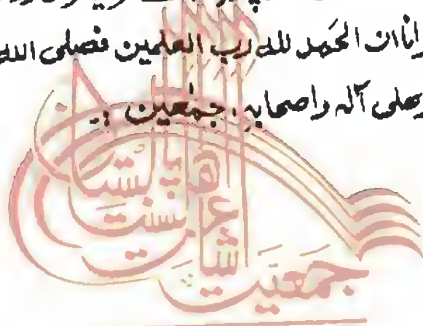 انا ان الحمد لله رب العلمین فصلی الله
وعلی آله واصحابه جمعین
جمعیت اشاعت اہلسنت پاکستان